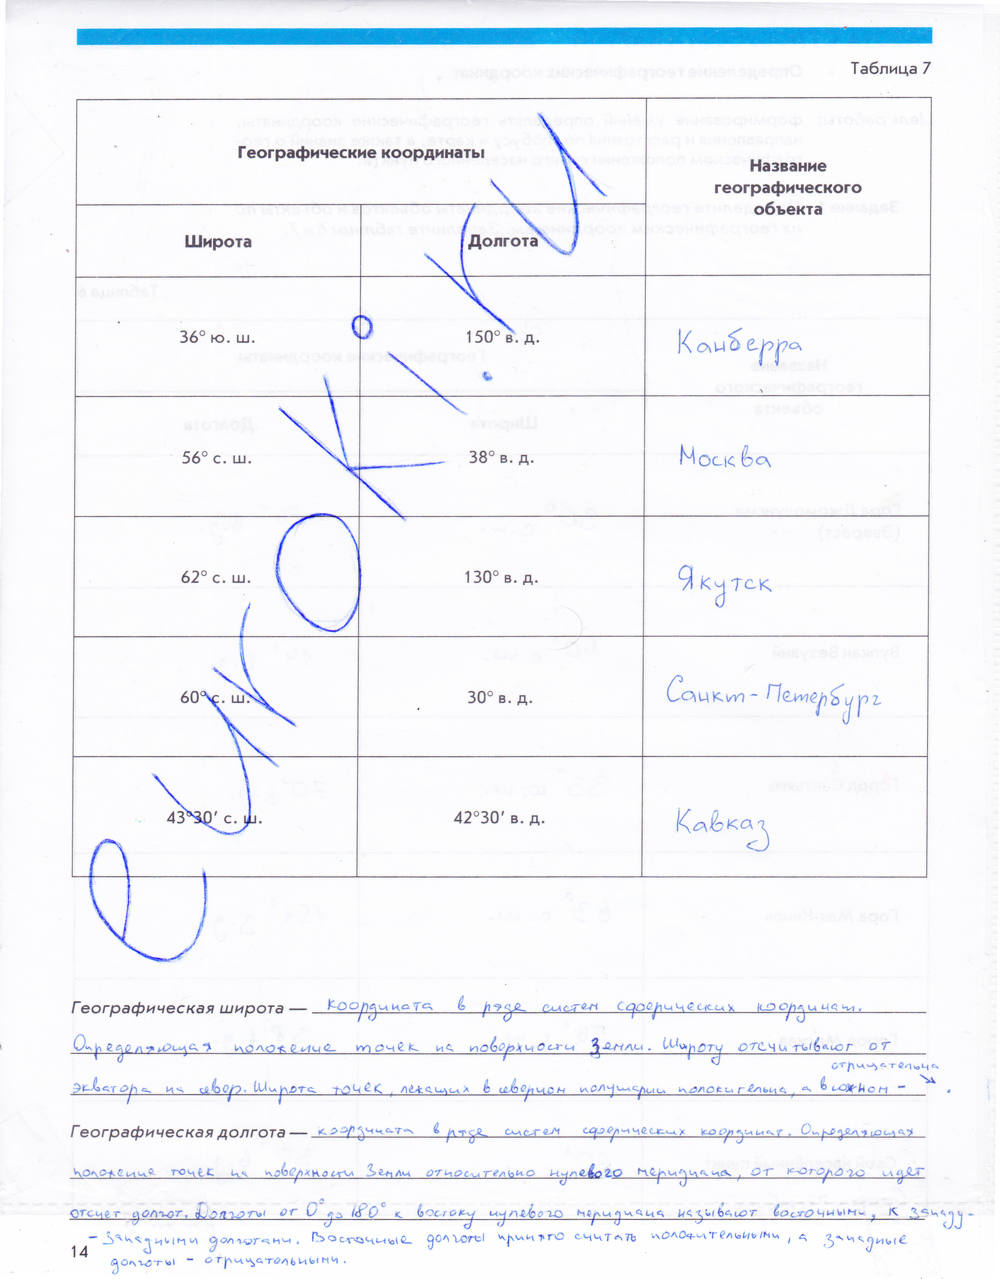 Таблица 7
Географические координаты
Название
географического
объекта
Широта Долгота
36° ю. ш. 150° в. д. Канберра
56° с. ш. 38° в. д. Москва
62° с. ш. 130° в. д. Якутск
60° с. ш. 30° в. д. Санкт-Петербург
43°30′ с. ш. 42°30′ в. д. Кавказ
euroki.ru
Географическая широта — координата в ряде систем сферических координат.
Определяющая положение точек на поверхности Земли. Широту отсчитывают от
отрицательна
экватора на север. Широта точек, лежащих в северном полушарии положительна, а в южном - .
Географическая долгота — координата в ряде систем сферических координат. Определяющая
положение точек на поверхности Земли относительно нулевого меридиана, от которого идет
отсчет долгот. Долготы от 0° до 180° к востоку нулевого меридиана называют восточными, к западу-
- Западными долготами. Восточные долготы принято считать положительными, а западные
14 долготы - отрицательными.